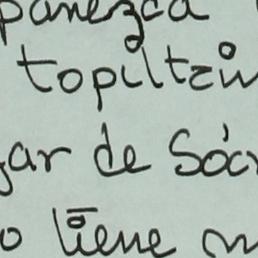 panezca
topiltzin
gar de Sóc
o tiene m